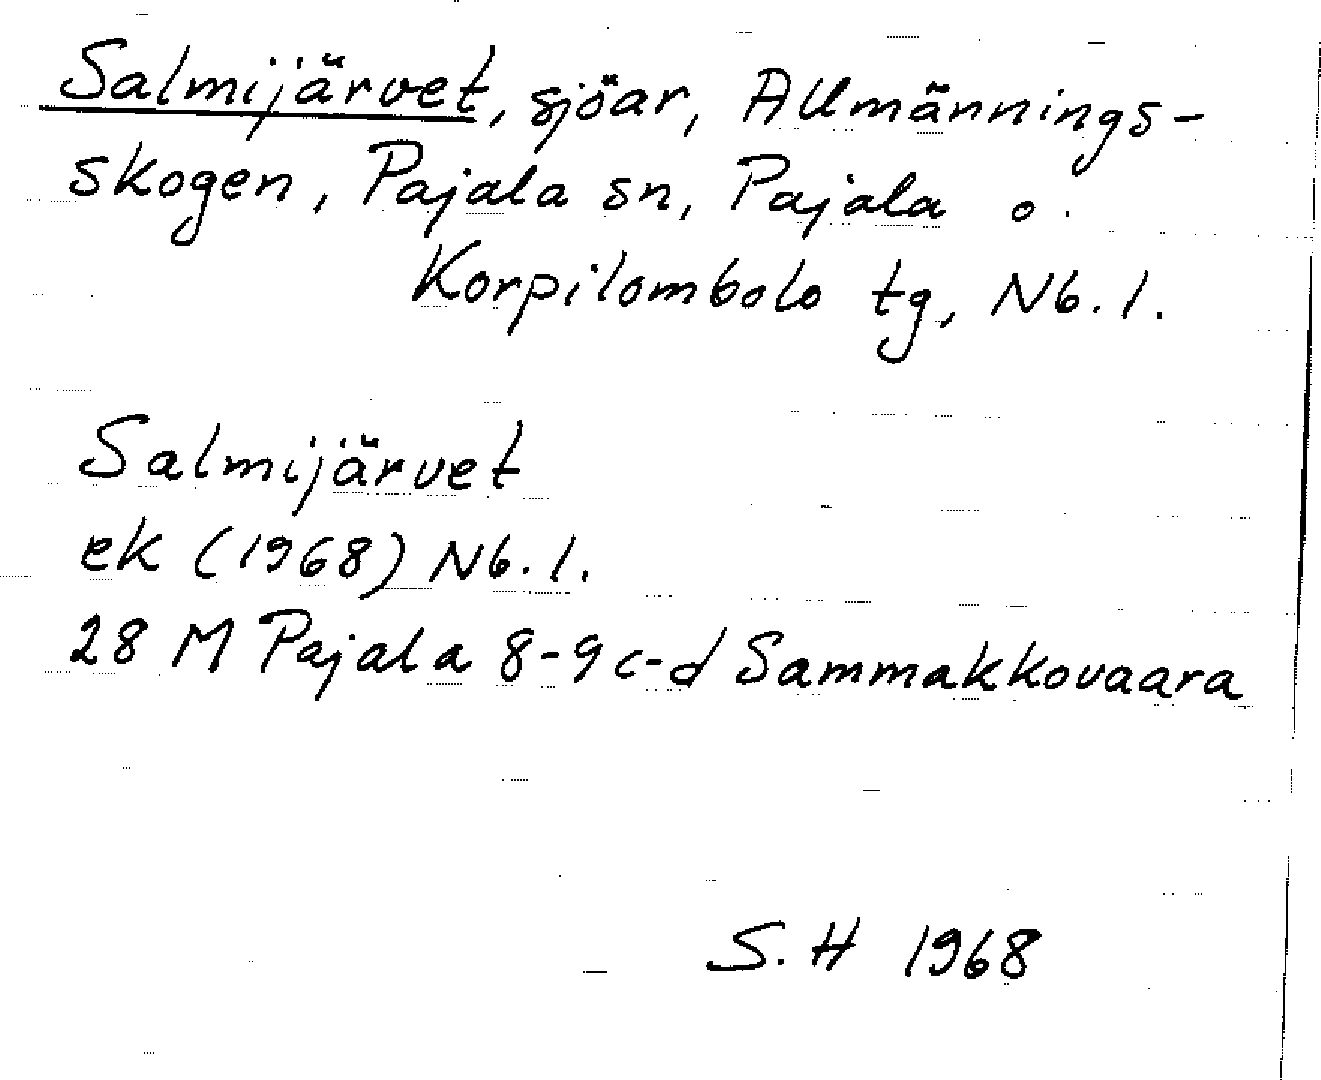 Salmijärvet, sjöar, Allmännings-
skogen, Pajala sn, Pajala o.
Korpilombolo tg, Nb. l.
Salmijärvet
ek (1968) Nb. l.
28 M Pajala 8-9 c-d Sammakkovaara
S. H 1968